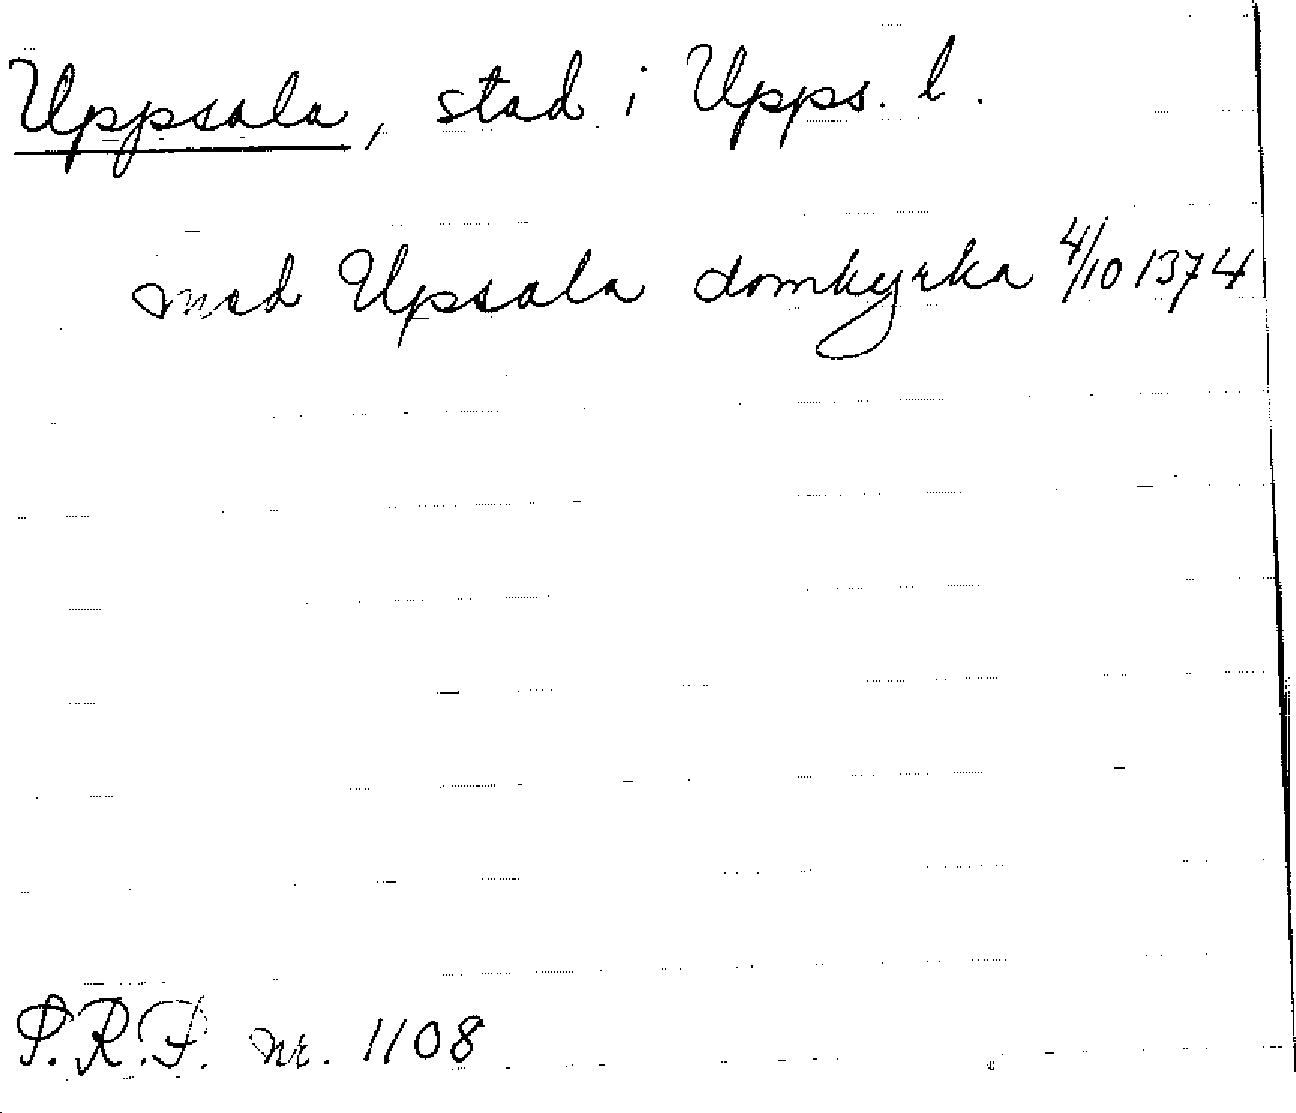 Uppsala, stad i Upps. l.
med Upsala domkyrka 4/10 1374
P.R.P. nr. 1108